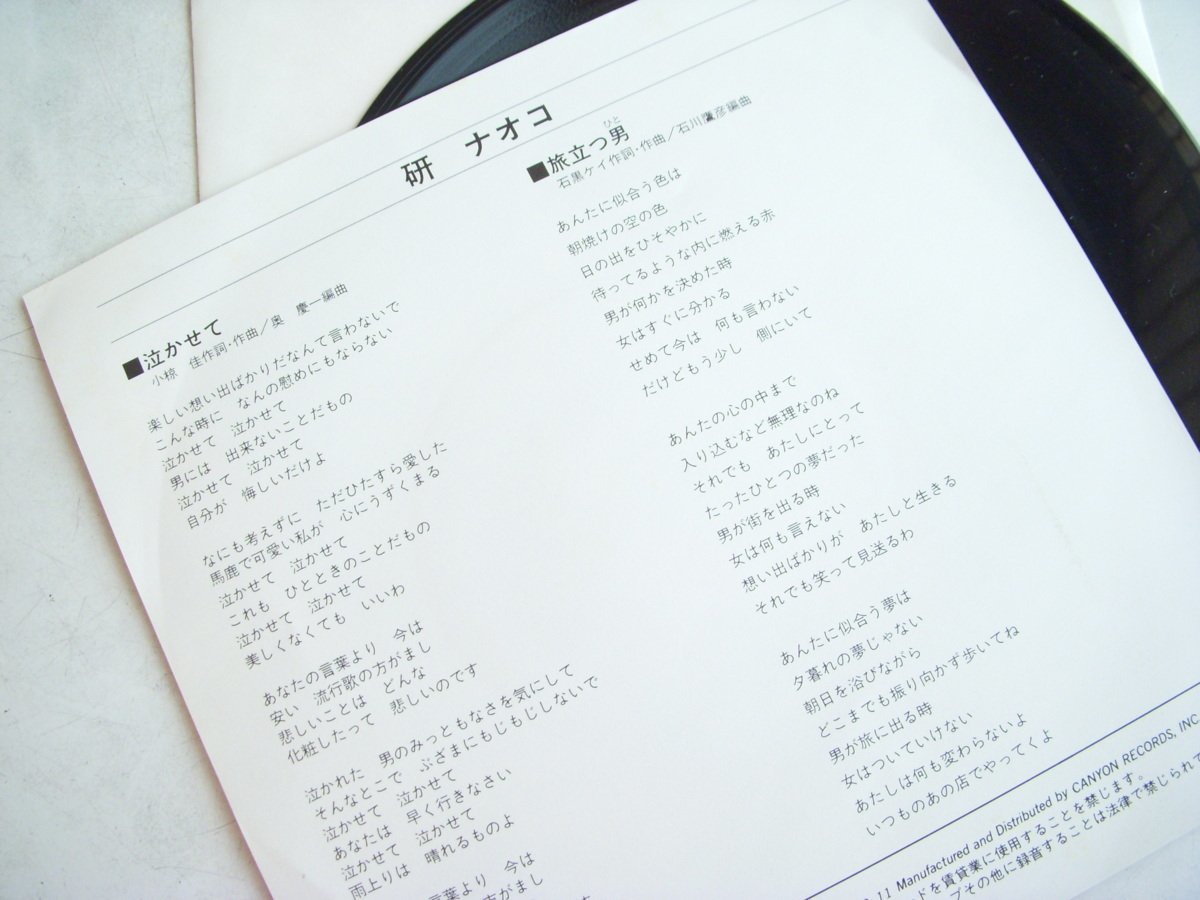 研　ナオコ
■泣かせて
小椋　佳作詞・作曲／奥　慶一編曲
楽しい想い出ばかりだなんて言わないで
こんな時に　なんの慰めにもならない
泣かせて　泣かせて
男には　出来ないことだもの
泣かせて　泣かせて
自分が　悔しいだけよ
なにも考えずに　ただひたすら愛した
馬鹿で可愛い私が　心にうずくまる
泣かせて　泣かせて
これも　ひとときのことだもの
泣かせて　泣かせて
美しくなくても　いいわ
あなたの言葉より　今は
安い　流行歌の方がまし
悲しいことは　どんな
化粧したって　悲しいのです
泣かれた　男のみっともなさを気にして
そんなとこで　ぶざまにもじもじしないで
泣かせて　泣かせて
あなたは　早く行きなさい
泣かせて　泣かせて
雨上りは　晴れるものよ
言葉より　今は
方がまし
■旅立つ男
ひと
石黒ケイ作詞・作曲／石川鷹彦編曲
あんたに似合う色は
朝焼けの空の色
日の出をひそやかに
待ってるような内に燃える赤
男が何かを決めた時
女はすぐに分かる
せめて今は　何も言わない
だけどもう少し　側にいて
あんたの心の中まで
入り込むなど無理なのね
それでも　あたしにとって
たったひとつの夢だった
男が街を出る時
女は何も言えない
想い出ばかりが　あたしと生きる
それでも笑って見送るわ
あんたに似合う夢は
夕暮れの夢じゃない
朝日を浴びながら
どこまでも振り向かず歩いてね
男が旅に出る時
女はついていけない
あたしは何も変わらないよ
いつものあの店でやってくよ
11 Manufactured and Distributed by CANYON RECORDS, INC.
ドを賃貸業に使用することを禁じます。
プその他に録音することは法律で禁じられて